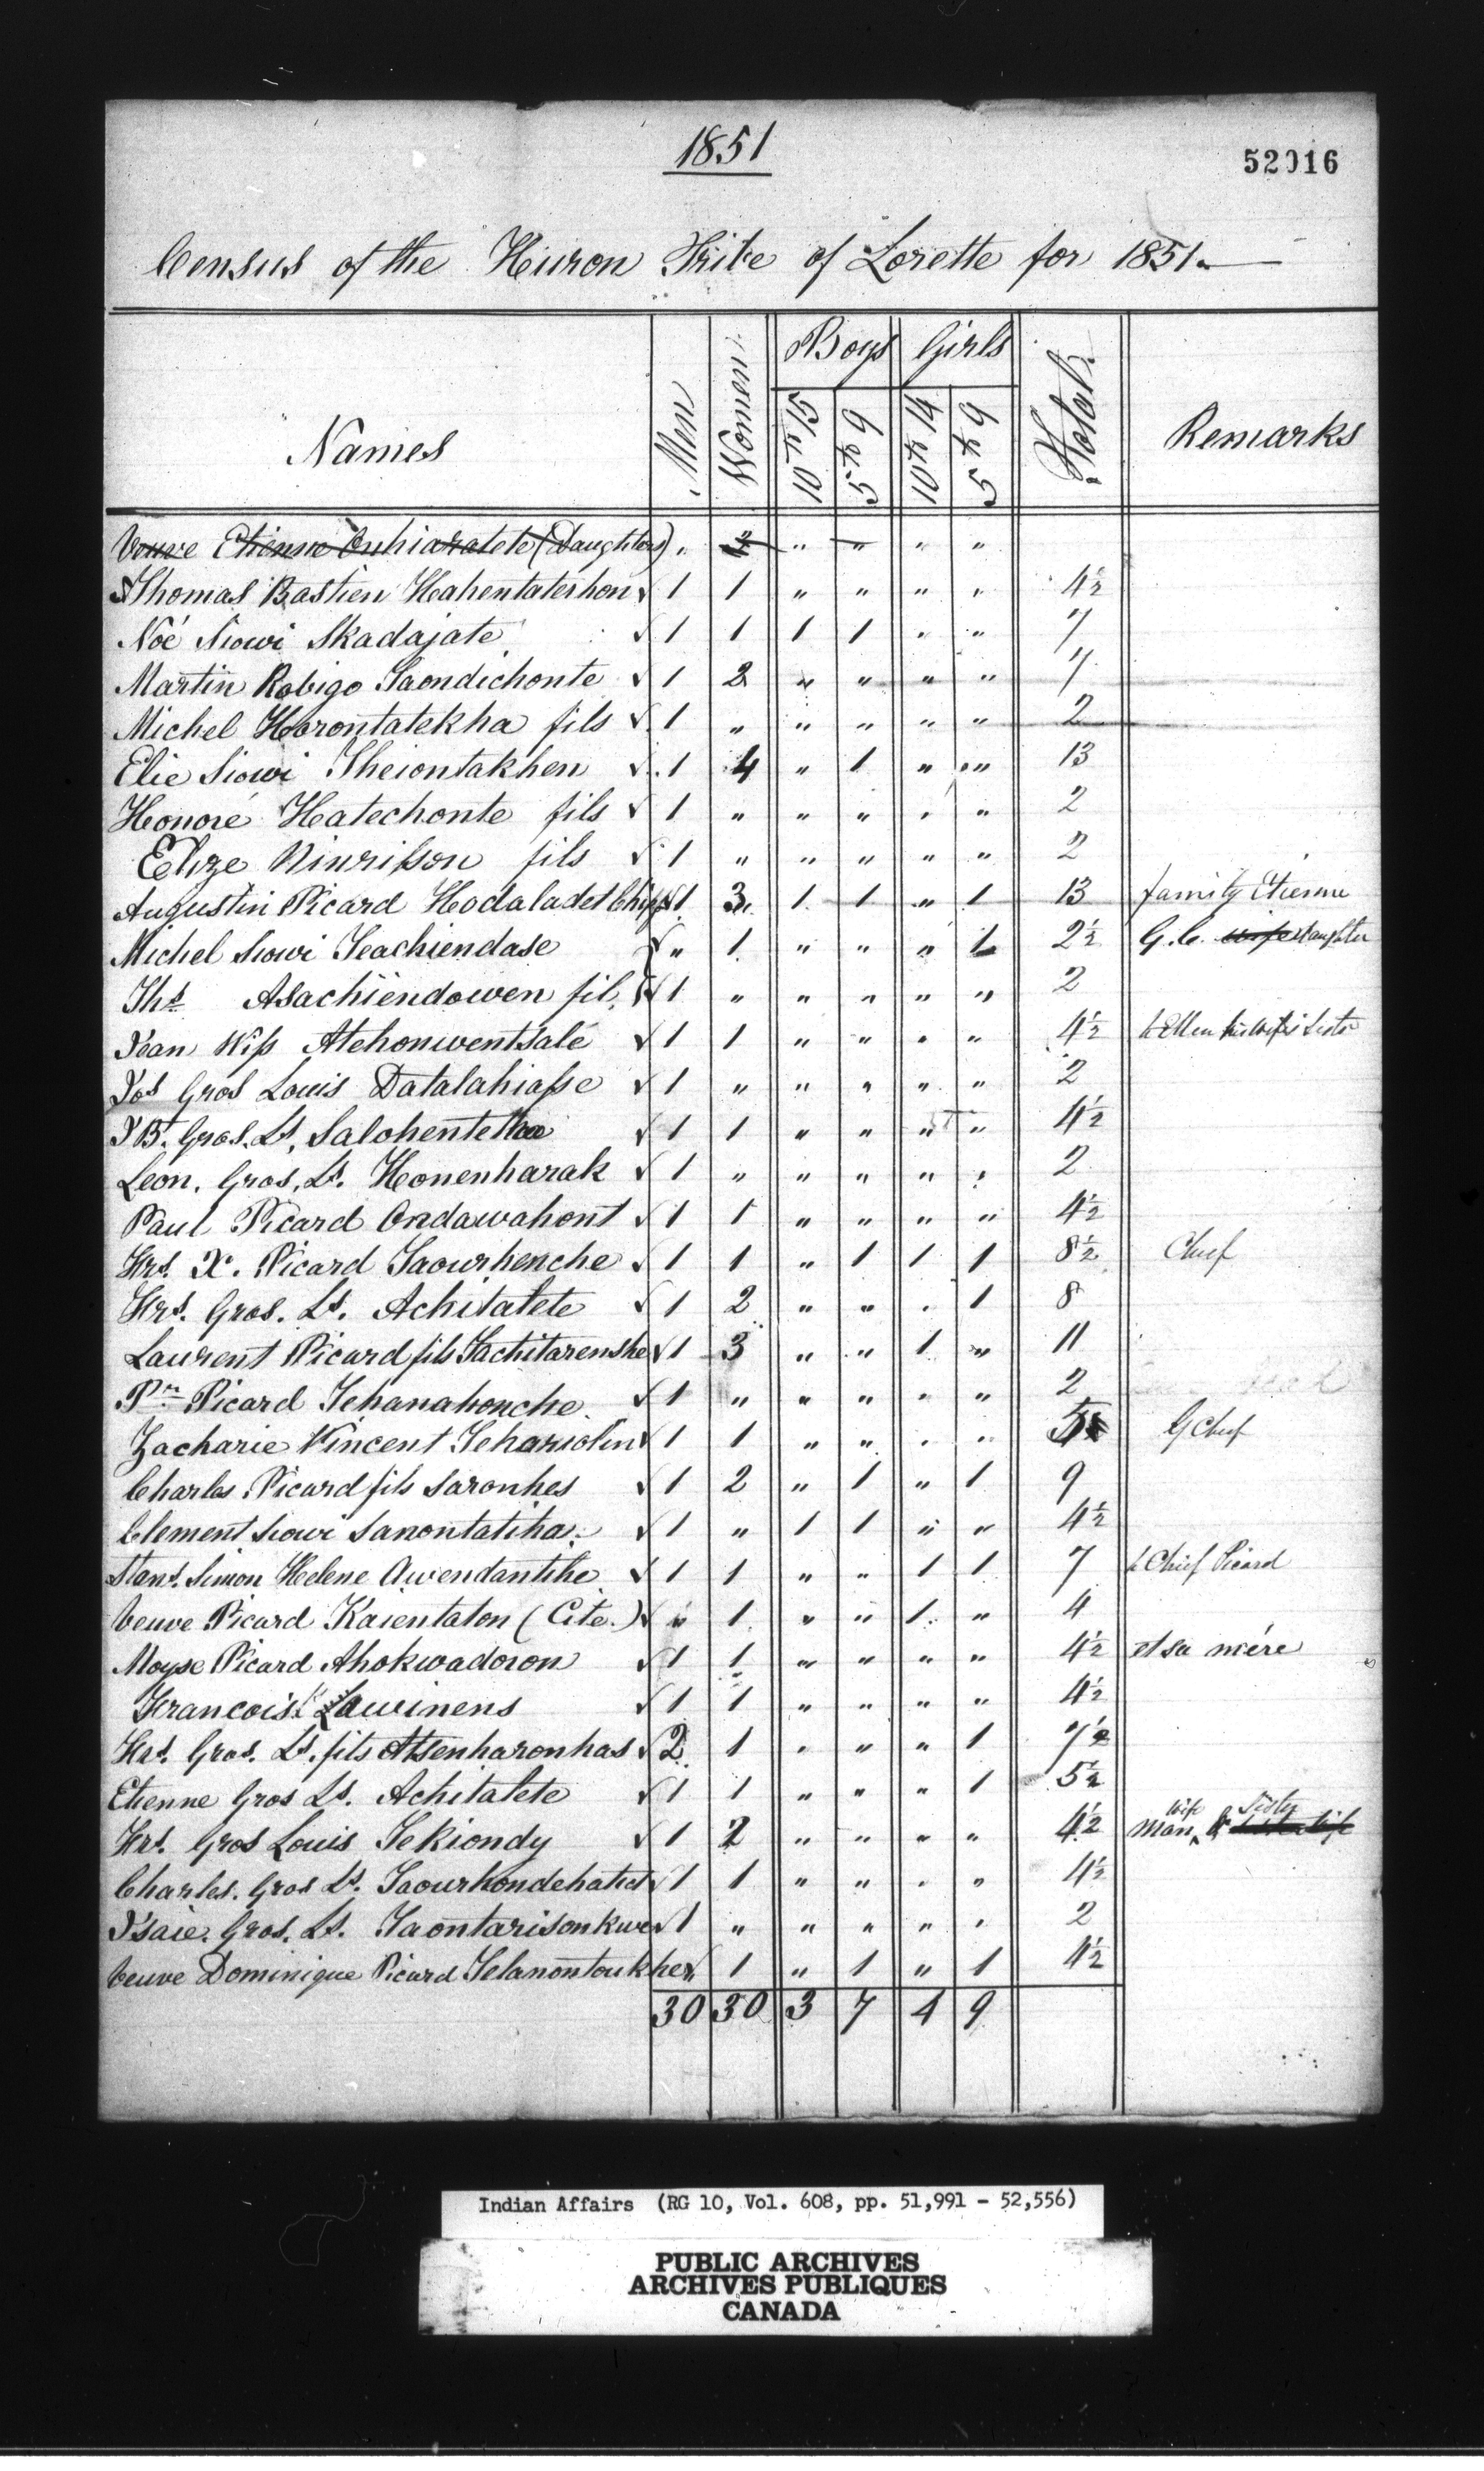 1851
52016
Census of the Huron Tribe of Lorette for 1851.
Names Men Women Boys Girls Total. Remarks
10 to 15 5 to 9 10 to 14 5 to 9
Veuve Etienne Onhiaratete (Daughters) " " " " "
Thomas Bastien Hahentatershon √ 1 1 " " " " 4½
Noé Siowi Skadajate √ 1 1 1 1 " " 7
Martin Robigo Taondichonte √ 1 2 " " " " 7
Michel Horontatekha fils √ 1 " " " " " 2
Elie Siowi Theiontakhen √ 1 4 " 1 " " 13
Honoré Hatechonte fils √ 1 " " " " " 2
Elize Ninrisson fils √ 1 " " " " " 2
Augustin Picard Hodaladet Chief √ 1 3 1 1 " 1 13 family Etienne
Michel Siowi Teachiendase √ " 1 " " " 1 2½ G. C. wife daughter
Ths. Asachiendowen fil. √ 1 " " " " " 2
Jean Wiss Atehonwentsale √ 1 1 " " " " 4½ Ellen his Wife's Sister
Jos Gros Louis Datalahiasse √ 1 " " " " " 2
J B. Gros. Ls. Salohentetha √ 1 1 " " " " 4½
Leon. Gros. Ls. Honenharak √ 1 " " " " " 2
Paul Picard Ondawahont √ 1 1 " " " " 4½
Frs. X. Picard Taourhenche √ 1 1 " 1 1 1 8½ Chief
Frs. Gros. Ls. Achitatete √ 1 2 " " " 1 8
Laurent Picard fils Tachitarenshe √ 1 3 " " 1 " 11
Prre Picard Tehanahonche √ 1 " " " " " 2
Zacharie Vincent Tehariolin √ 1 1 " " " " 5 G Chief
Charles Picard fils Saronhes √ 1 2 " 1 " 1 9
Clement Siowi Sanontatiha √ 1 " 1 1 " " 4½
Stans. Simon Helene Awendantihe √ 1 1 " " 1 1 7 Chief Picard
Veuve Picard Kaientaton (Cite.) √ " 1 " " 1 " 4
Moyse Picard Ahokwadoron √ 1 1 " " " " 4½ et sa mére
Francois Lawinens √ 1 1 " " " " 4½
Frs. Gros. Ls. fils Atsenharonhas √ 2 1 " " " 1 7½
Etienne Gros Ls. Achitatete √ 1 1 " " " 1 5½
Frs. Gros Louis Tekiondy √ 1 2 " " " " 4½ Man, Wife & Sister
Charles. Gros Ls. Taourhondehatet √ 1 1 " " " " 4½
Isaie. Gros. Ls. Taontarisonkwe √ 1 " " " " " 2
Veuve Dominique Picard Telanontoukhe √ " 1 " 1 " 1 4½
30 30 3 7 4 9
Indian Affairs (RG 10, Vol. 608, pp. 51,991 - 52,556)
PUBLIC ARCHIVES
ARCHIVES PUBLIQUES
CANADA